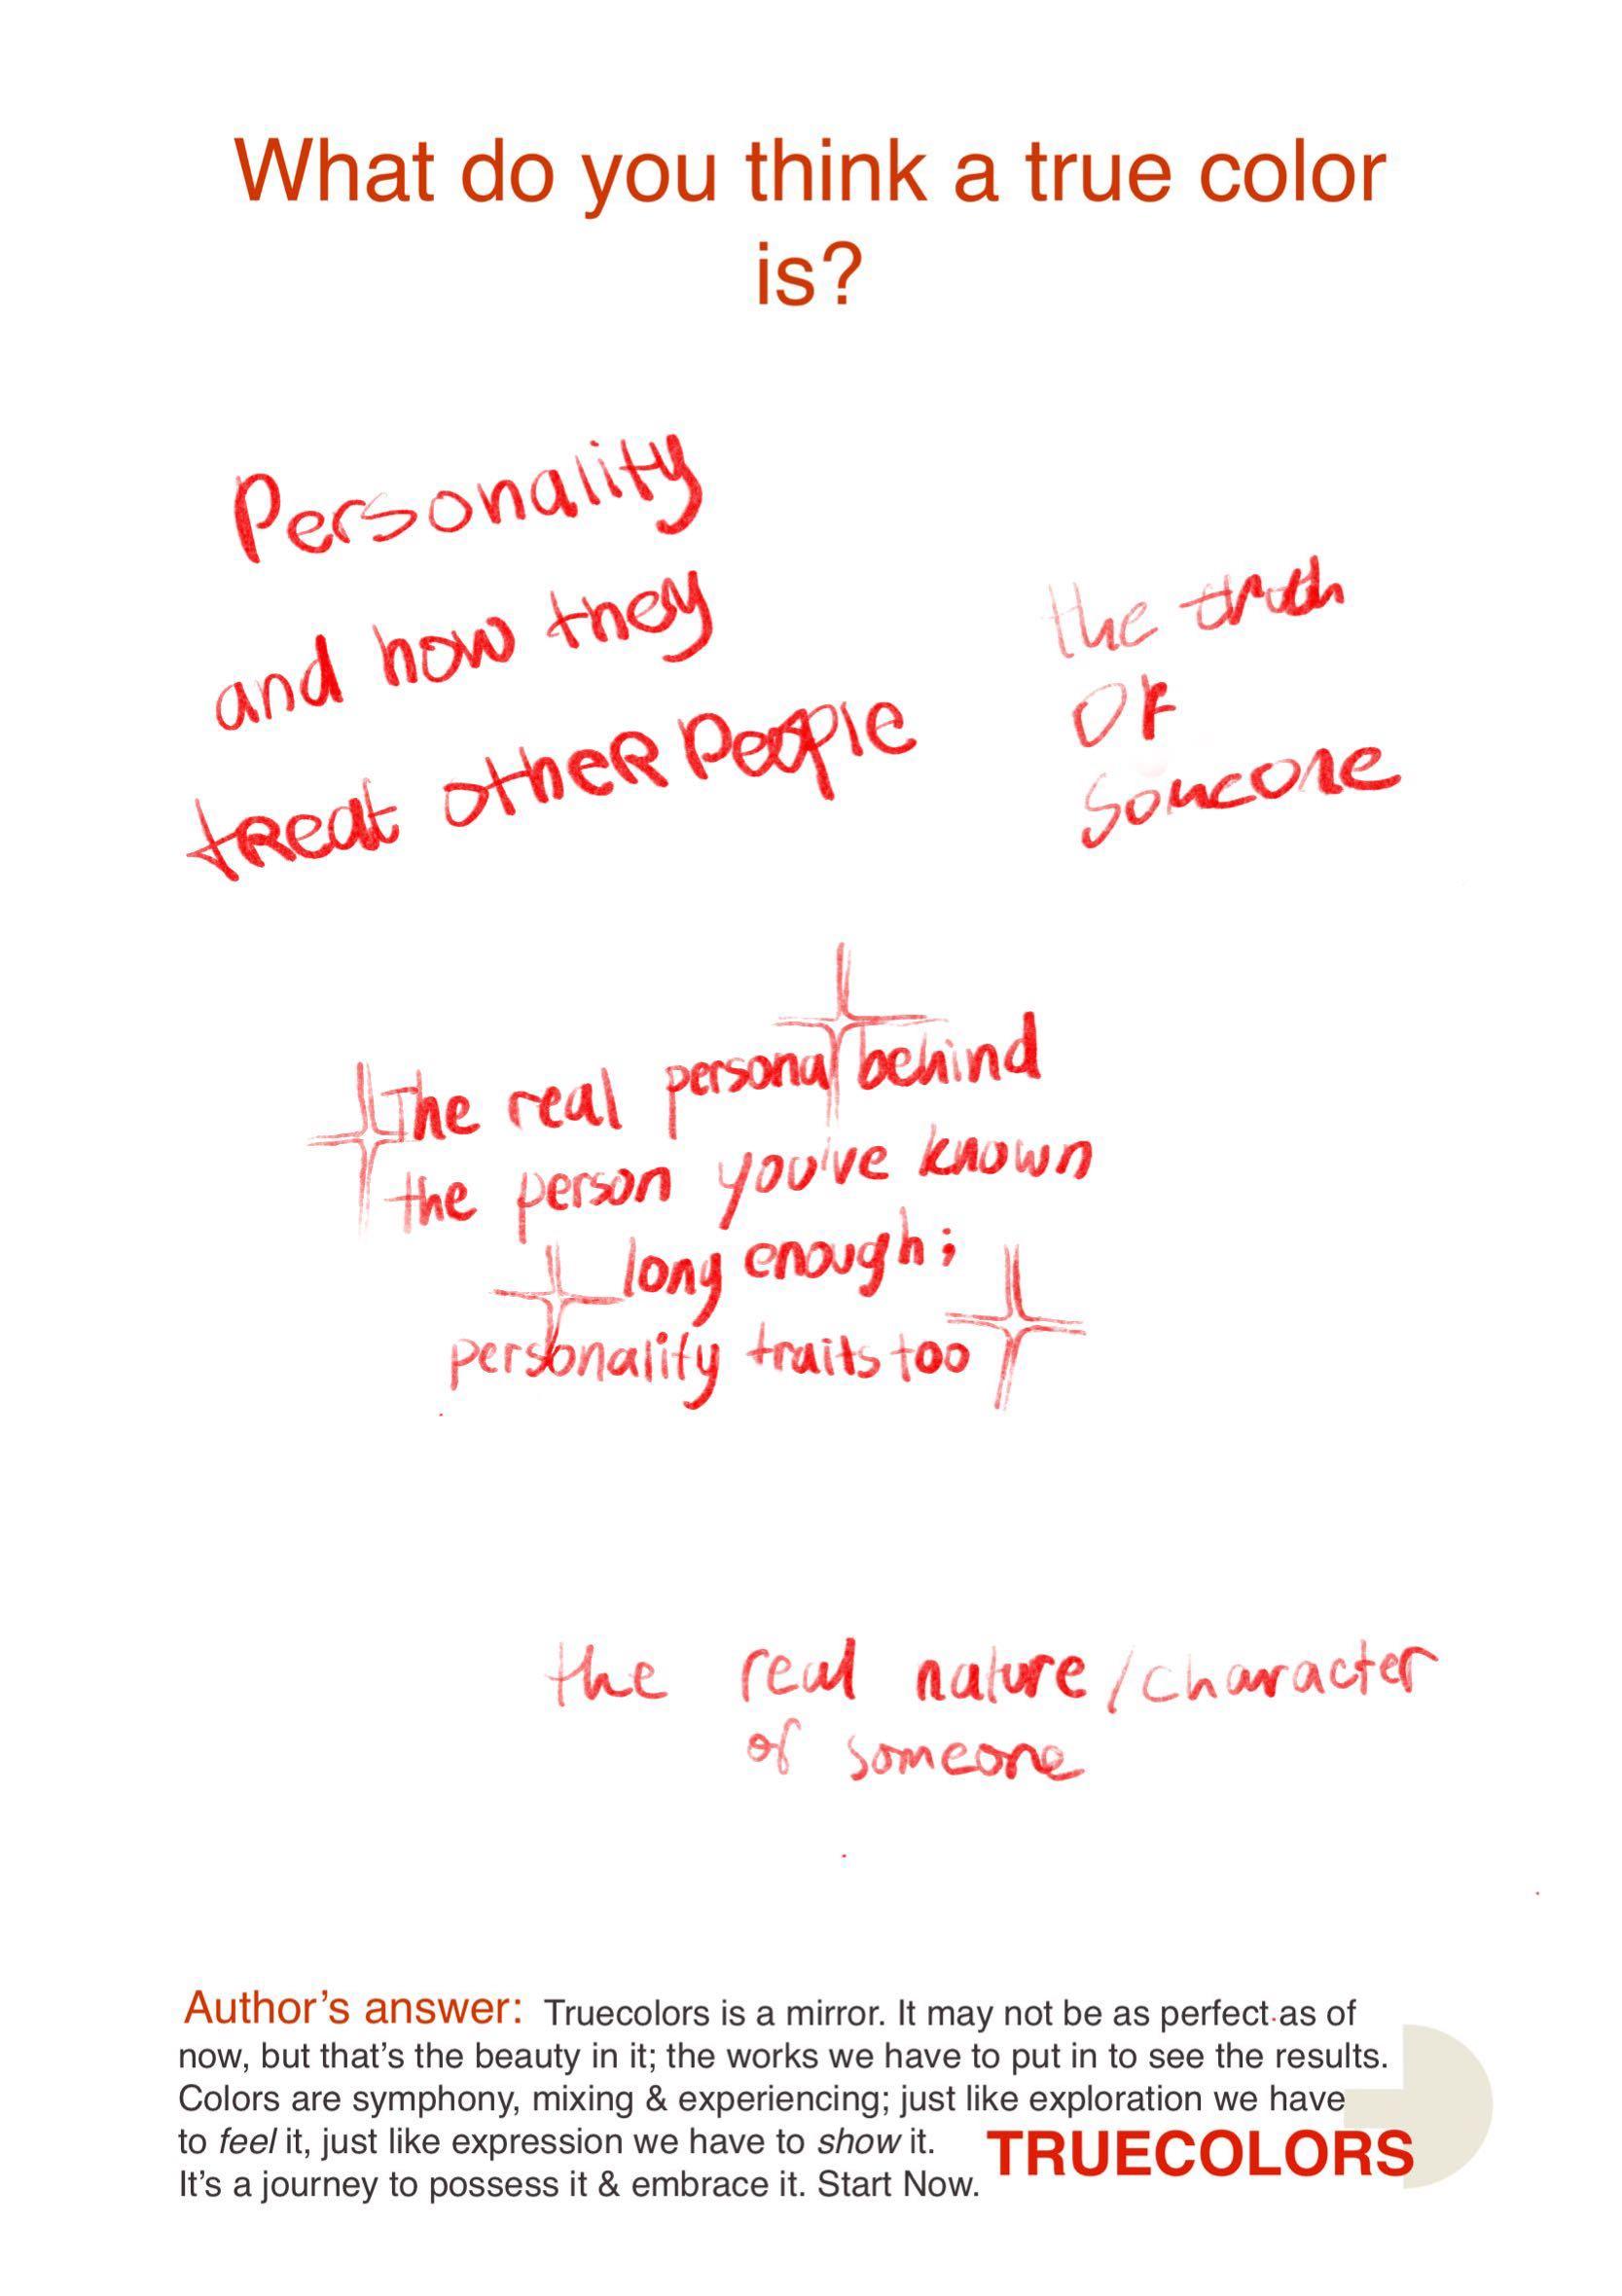 What do you think a true color
is?
Personality
and how they
treat other people
the truth
of
someone
The real persona behind
the person you've known
long enough;
personality traits too
the real nature/character
of someone
Author's answer: Truecolors is a mirror. It may not be as perfect as of
now, but that's the beauty in it; the works we have to put in to see the results.
Colors are symphony, mixing & experiencing; just like exploration we have
to feel it, just like expression we have to show it.
It's a journey to possess it & embrace it. Start Now.
TRUECOLORS